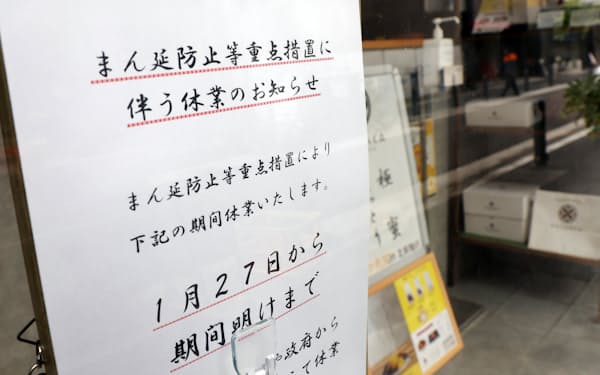 まん延防止等重点措置に
伴う休業のお知らせ
まん延防止等重点措置により
下記の期間休業いたします。
1月27日から
期間明けまで
や政府から
て休業
極
蜜